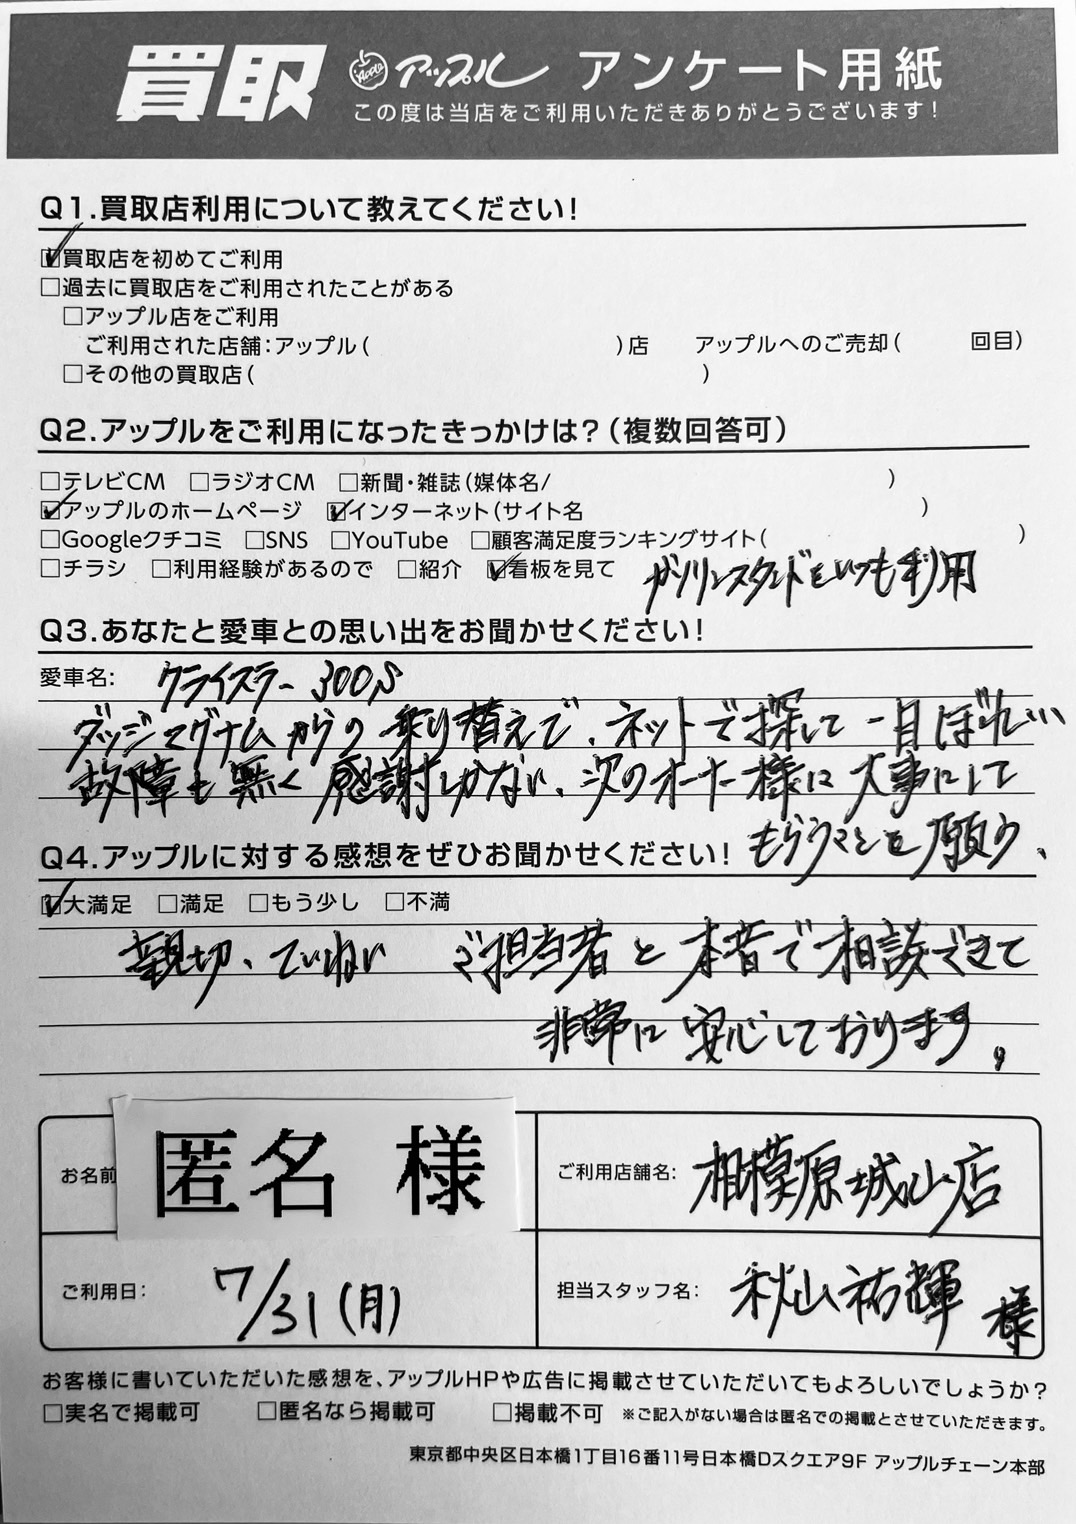 買取 Apple アップル アンケート用紙
この度は当店をご利用いただきありがとうございます!
Q1.買取店利用について教えてください!
☑買取店を初めてご利用
□過去に買取店をご利用されたことがある
□アップル店をご利用
ご利用された店舗:アップル( )店 アップルへのご売却( 回目)
□その他の買取店( )
Q2.アップルをご利用になったきっかけは?(複数回答可)
□テレビCM □ラジオCM □新聞・雑誌(媒体名/ )
☑アップルのホームページ ☑インターネット(サイト名 )
□Googleクチコミ □SNS □YouTube □顧客満足度ランキングサイト( )
□チラシ □利用経験があるので □紹介 ☑看板を見て ガソリンスタンドをいつも利用
Q3.あなたと愛車との思い出をお聞かせください!
愛車名: クライスラー 300S
ダッジマグナムからの乗り替えで、ネットで探して一目ぼれ…
故障も無く感謝しかない、次のオーナー様に大事にして
もらうマシンを願う、
Q4.アップルに対する感想をぜひお聞かせください!
☑大満足 □満足 □もう少し □不満
親切、ていねい ご担当者と本音で相談できて
非常に安心しております。
お名前 匿名 様 ご利用店舗名: 相模原城山店
ご利用日: 7/31(月) 担当スタッフ名: 秋山祐輝 様
お客様に書いていただいた感想を、アップルHPや広告に掲載させていただいてもよろしいでしょうか?
□実名で掲載可 □匿名なら掲載可 □掲載不可 ※ご記入がない場合は匿名での掲載とさせていただきます。
東京都中央区日本橋1丁目16番11号日本橋Dスクエア9F アップルチェーン本部